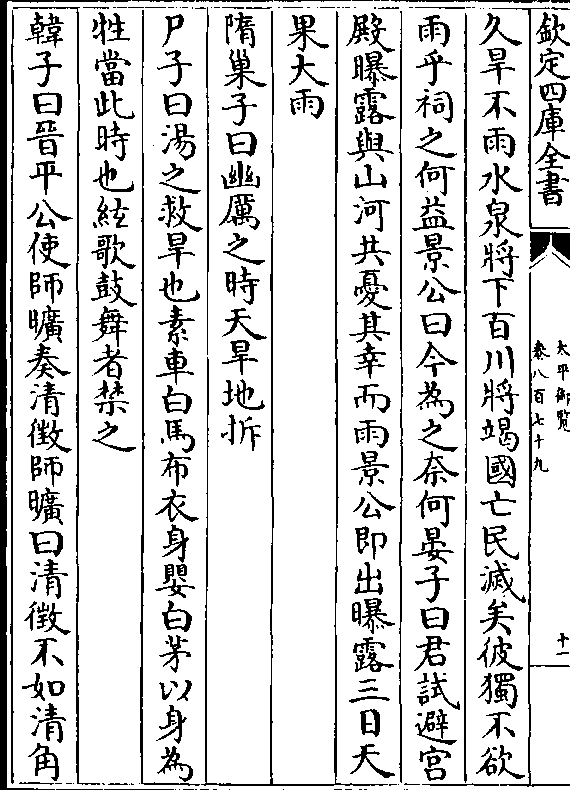 欽定四庫全書
太平御覽
卷八百七十九
十一
久旱不雨水泉將下百川將竭國亡民滅矣彼獨不欲
雨乎祠之何益景公曰今為之奈何晏子曰君試避宮
殿曝露與山河共憂其幸而雨景公即出曝露三日天
果大雨
隋巢子曰幽厲之時天旱地坼
尸子曰湯之救旱也素車白馬布衣身嬰白茅以身為
牲當此時也絃歌鼓舞者禁之
韓子曰晉平公使師曠奏清徴師曠曰清徴不如清角